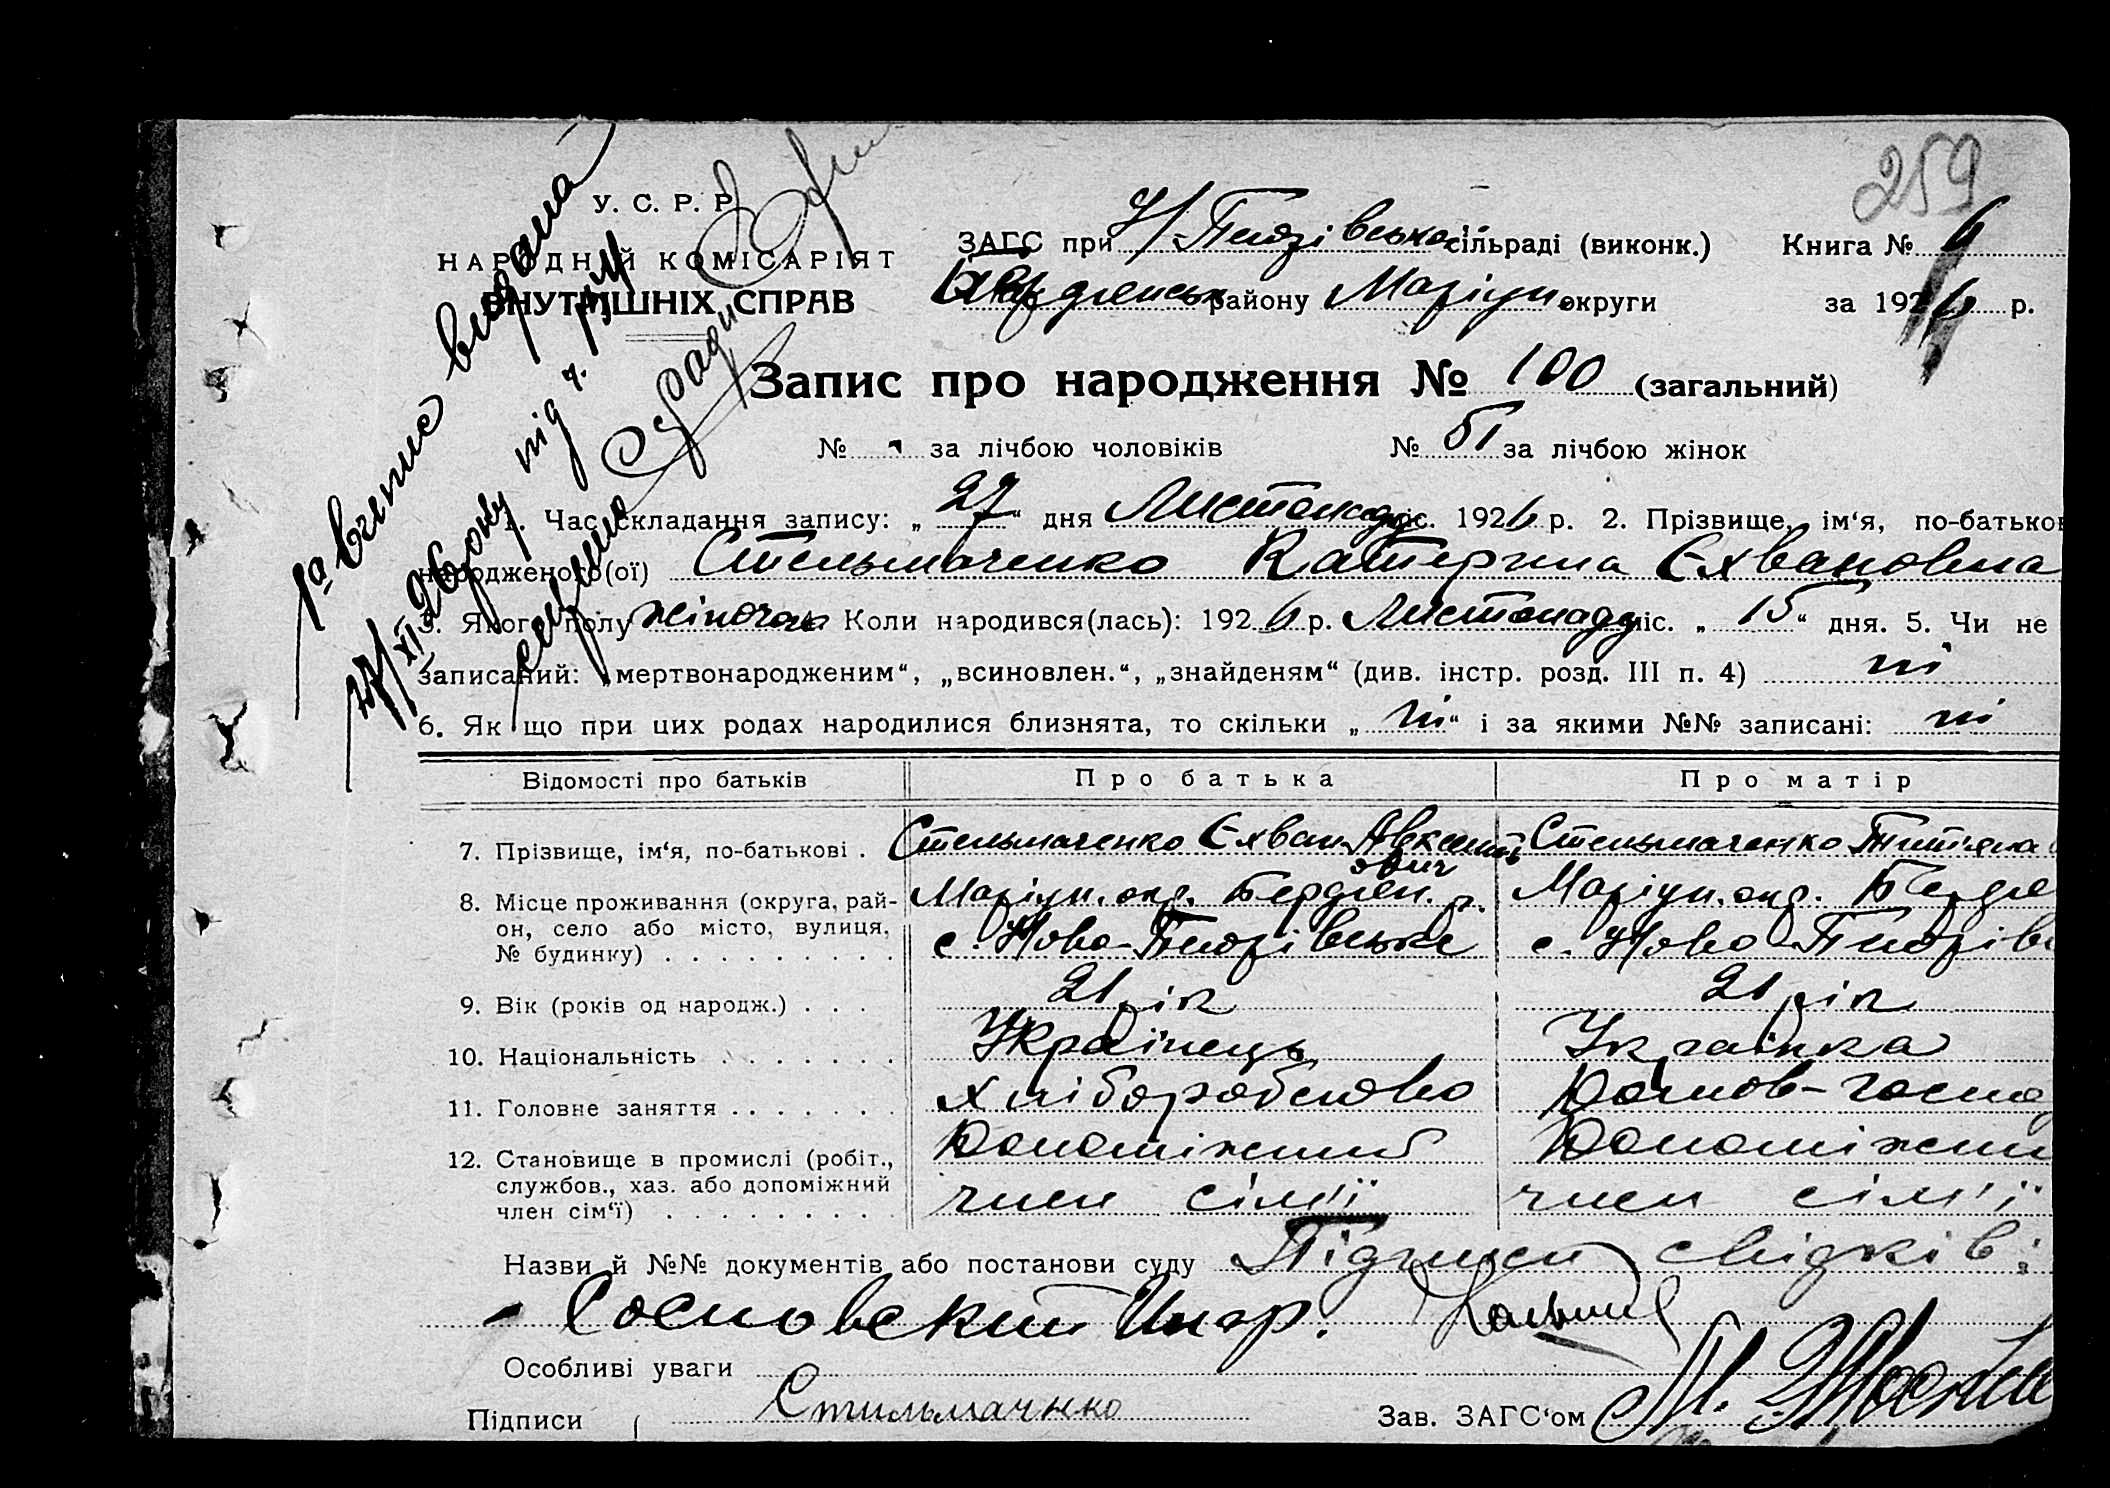 259
У. С. Р. Р.
НАРОДНІЙ КОМІСАРІЯТ
ВНУТРІШНІХ СПРАВ
ЗАГС при сільраді (виконк.) Книга № 6
району Маріуп. округи за 1926 р.
Запис про народження № 100 (загальний)
№ - за лічбою чоловіків № 51 за лічбою жінок
1. Час складання запису: „27“ дня Листопаду міс. 1926 р. 2. Прізвище, ім‘я, по-батькові
народженого(ої) Стельмаченко Катерина Єхвановна
3. Якого полу жіночого Коли народився(лась): 1926 р. Листопаду міс. „15“ дня. 5. Чи не
записаний: „мертвонародженим“, „всиновлен.“, „знайденям“ (див. інстр. розд. III п. 4) ні
6. Як що при цих родах народилися близнята, то скільки „ні“ і за якими №№ записані: ні
Відомості про батьків Про батька Про матір
7. Прізвище, ім‘я, по-батькові . Стельмаченко Єхван Авксентьович Стельмаченко
8. Місце проживання (округа, рай-он, село або місто, вулиця, № будинку)
Маріуп. окр. Бердян. р. Маріуп. окр. Бердя
с. Ново- с. Ново-
9. Вік (років од народж.) . . . 21 рік 21 рік
10. Національність . . . . . . . Українець Українка
11. Головне заняття . . . . . . . хліборобство Домов-госпо
12. Становище в промислі (робіт., службов., хаз. або допоміжний член сім‘ї) . . . . . . . . .
Допоміжний Допоміжни
член сім'ї член сім'ї
Назви й №№ документів або постанови суду Підписи свідків:
- Сосновский
Особливі уваги
Підписи Стильмаченко Зав. ЗАГС‘ом